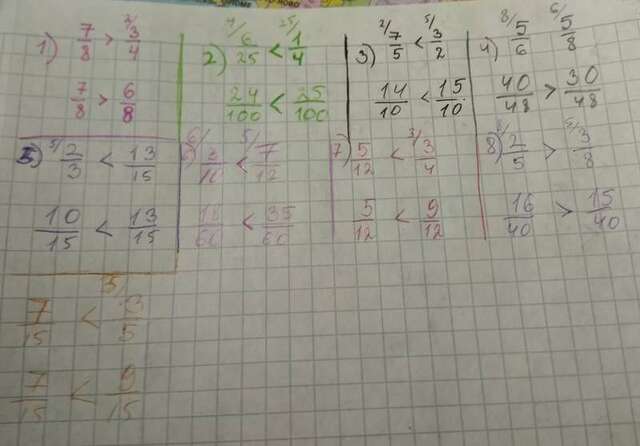 1) 7/8 > ²/3/4
7/8 > 6/8
2) ⁴/6/25 < ²⁵/1/4
24/100 < 25/100
3) ²/7/5 < ⁵/3/2
14/10 < 15/10
4) ⁸/5/6 ⁶/5/8
40/48 > 30/48
5) ⁵/2/3 < 13/15
10/15 < 13/15
6) ⁶/3/10 < ⁵/7/12
18/60 < 35/60
7) 5/12 < ³/3/4
5/12 < 9/12
8) ⁸/2/5 > ⁵/3/8
16/40 > 15/40
7/15 < ³/ /5
7/15 < /15